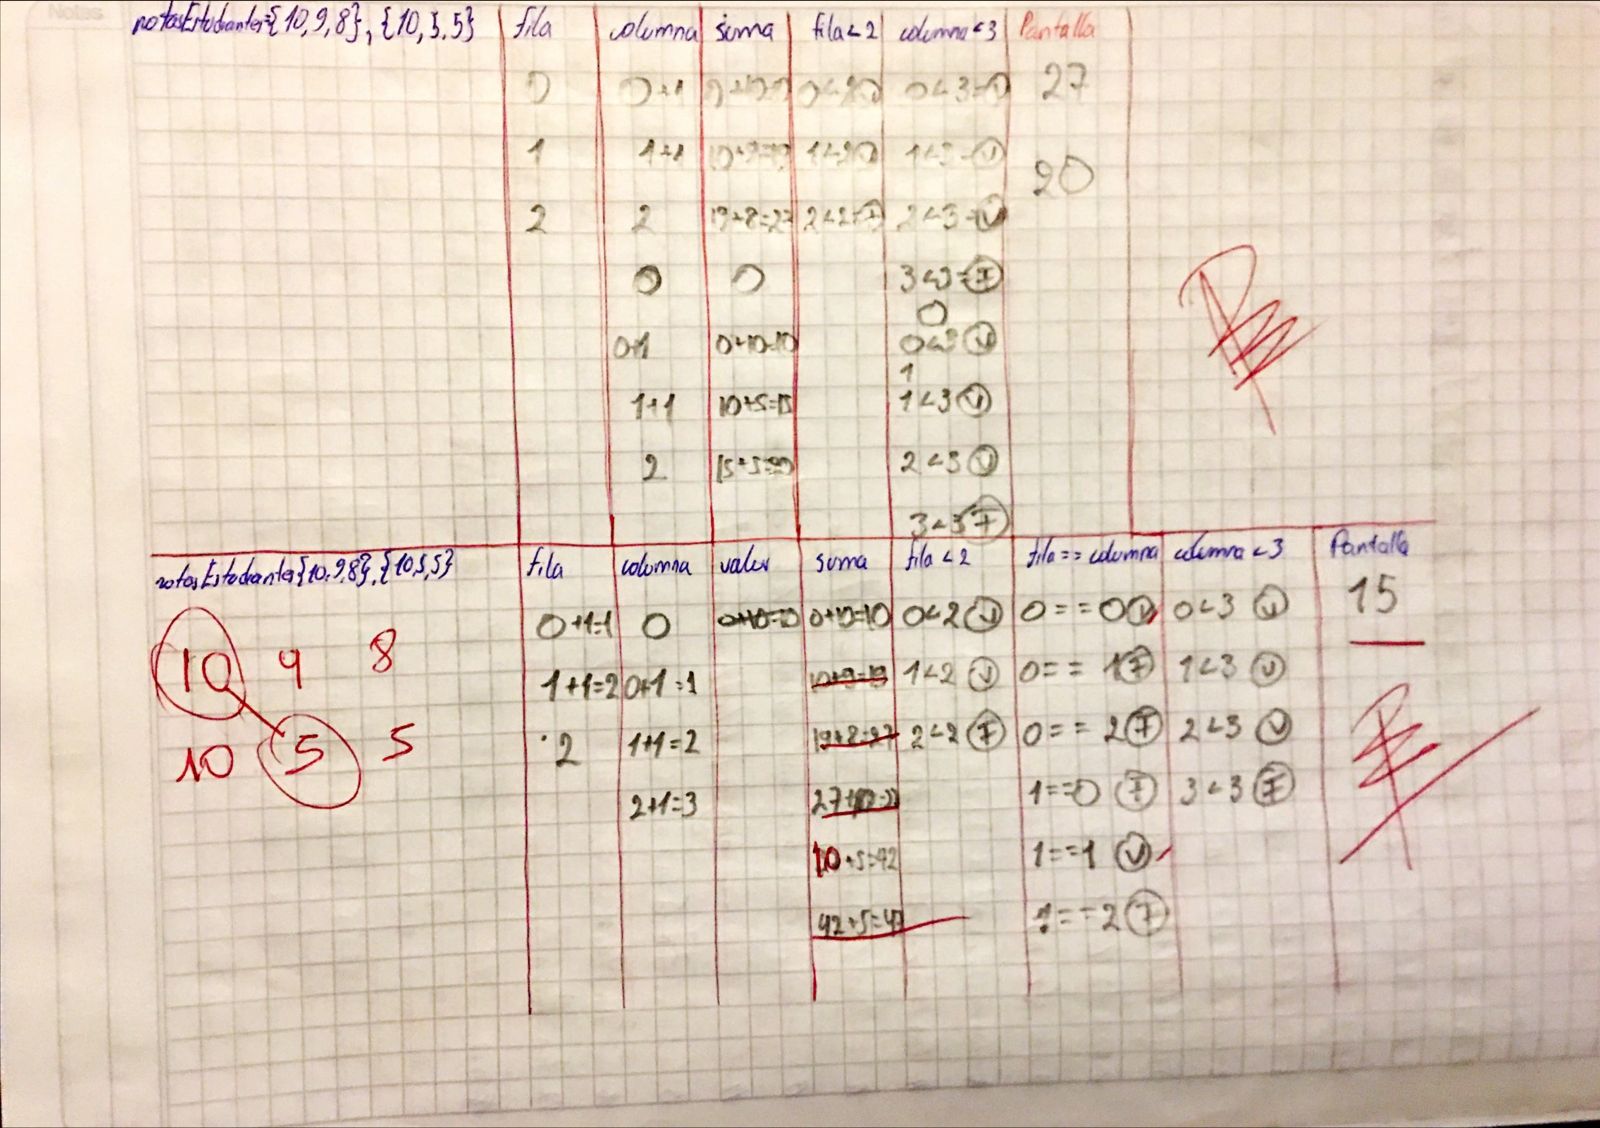 Notas
notasEstudiante={10,9,8},{10,5,5} fila columna suma fila<2 columna<3 Pantalla
0 0+1 0+10=10 0<2 V 0<3=V 27
1 1+1 10+9=19 1<2 V 1<3=V 20
2 2 19+8=27 2<2=F 2<3=V
0 0 3<3=F
0
0+1 0+10=10 0<3 V
1
1+1 10+5=15 1<3 V
2 15+5=20 2<3 V
3<3 F
notasEstudiante{10,9,8},{10,5,5} fila columna valor suma fila<2 fila==columna columna<3 Pantalla
0+1=1 0 0+10=10 0+10=10 0<2 V 0==0 V 0<3 V 15
10 9 8
1+1=2 0+1=1 10+9=19 1<2 V 0==1 F 1<3 V
10 5 5
2 1+1=2 19+8=27 2<2 F 0==2 F 2<3 V
2+1=3 1==0 F 3<3 F
10+5=42 1==1 V
42+5=47 1==2 F